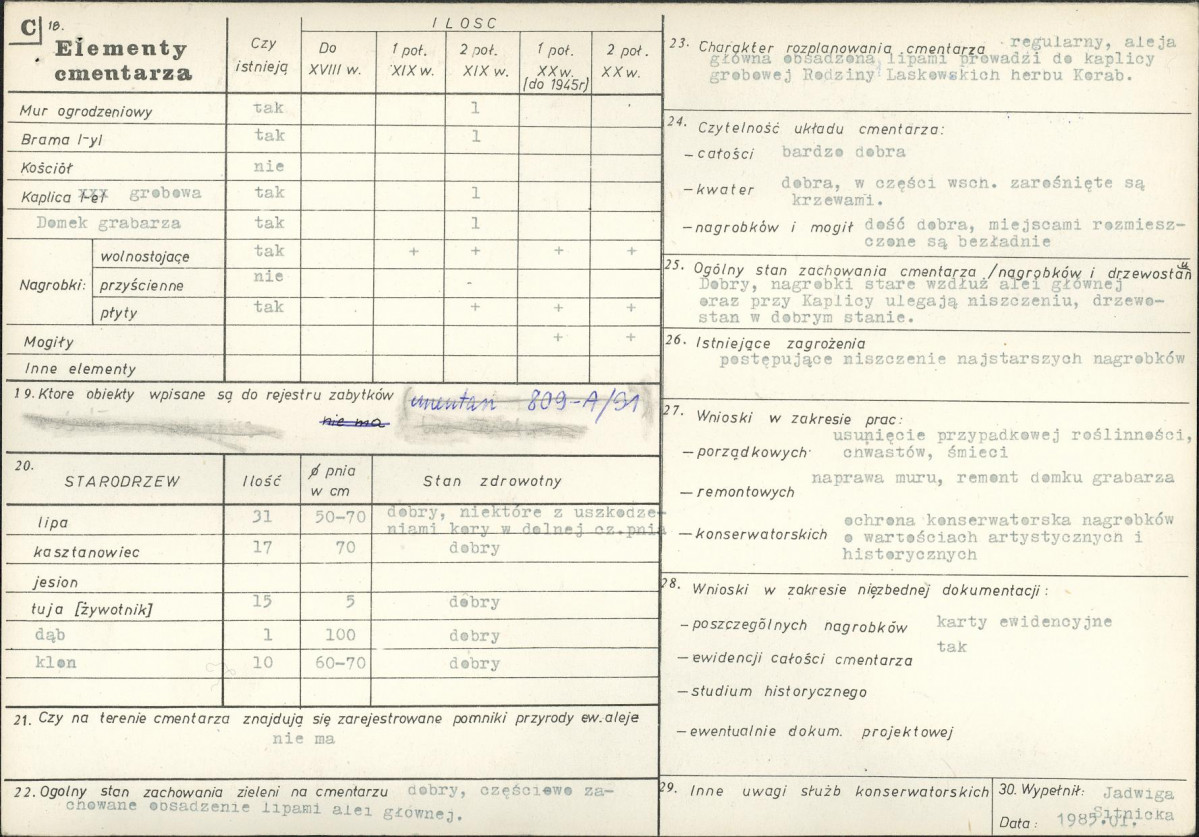 C 18.
Elementy
cmentarza
Czy
istnieją
ILOSC
Do
XVIII w.
1 poł.
XIX w.
2 poł.
XIX w.
1 poł.
XX w.
(do 1945r)
2 poł.
XX w.
Mur ogrodzeniowy tak 1
Brama /-y/ tak 1
Kościół nie
Kaplica /-e/ XXX grobowa tak 1
Domek grabarza tak 1
Nagrobki: wolnostojące tak + + + +
przyścienne nie -
płyty tak + + +
Mogiły + +
Inne elementy
19. Ktore obiekty wpisane są do rejestru zabytków cmentarz 809-A/91
nie ma
20.
STARODRZEW Ilość ø pnia
w cm Stan zdrowotny
lipa 31 50-70 dobry, niektóre z uszkodze-
niami kory w dolnej cz.pnia
kasztanowiec 17 70 dobry
jesion
tuja [żywotnik] 15 5 dobry
dąb 1 100 dobry
klon 10 60-70 dobry
21. Czy na terenie cmentarza znajdują się zarejestrowane pomniki przyrody ew. aleje
nie ma
22. Ogolny stan zachowania zieleni na cmentarzu dobry, częściowo za-
chowane obsadzenie lipami alei głównej.
23. Charakter rozplanowania cmentarza regularny, aleja
główna obsadzona lipami prowadzi do kaplicy
grobowej Rodziny Laskowskich herbu Korab.
24. Czytelność układu cmentarza:
- całości bardzo dobra
- kwater dobra, w części wsch. zarośnięte są
krzewami.
- nagrobków i mogił dość dobra, miejscami rozmiesz-
czone są bezładnie
25. Ogólny stan zachowania cmentarza /nagrobków i drzewostanu
Dobry, nagrobki stare wzdłuż alei głównej
oraz przy Kaplicy ulegają niszczeniu, drzewo-
stan w dobrym stanie.
26. Istniejące zagrożenia
postępujące niszczenie najstarszych nagrobków
27. Wnioski w zakresie prac:
usunięcie przypadkowej roślinności,
- porządkowych chwastów, śmieci
naprawa muru, remont domku grabarza
- remontowych
ochrona konserwatorska nagrobków
- konserwatorskich o wartościach artystycznych i
historycznych
28. Wnioski w zakresie niezbędnej dokumentacji:
- poszczególnych nagrobków karty ewidencyjne
tak
- ewidencji całości cmentarza
- studium historycznego
- ewentualnie dokum. projektowej
29. Inne uwagi służb konserwatorskich
30. Wypełnił: Jadwiga
Sitnicka
Data: 1985.01.